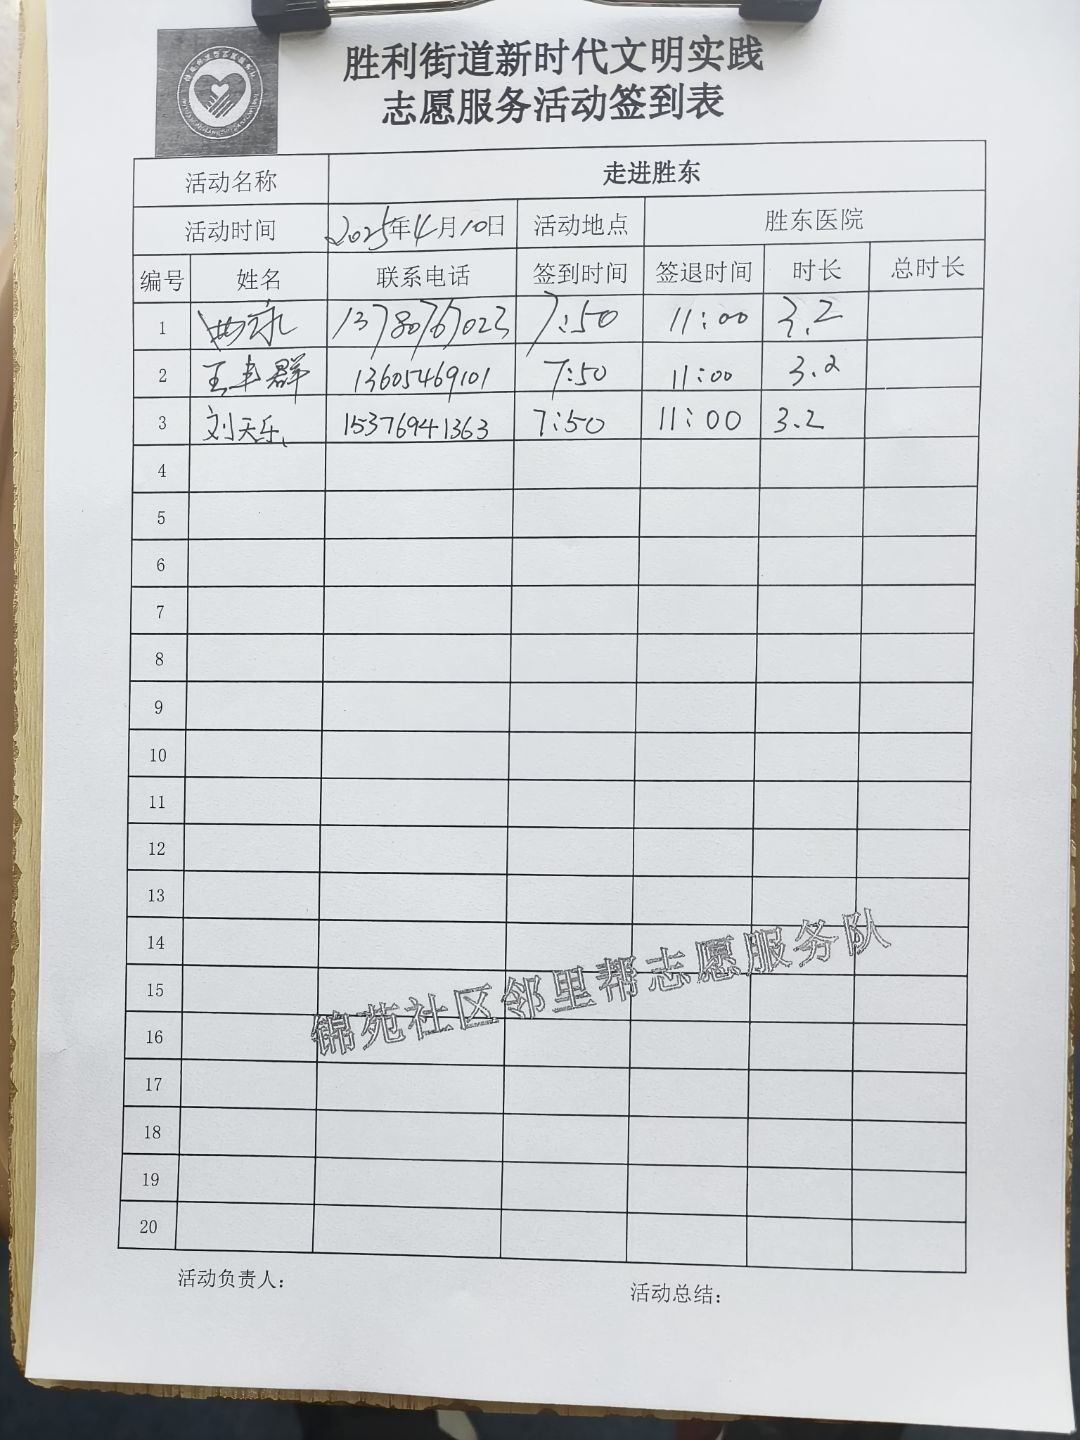 胜利街道新时代文明实践
志愿服务活动签到表
活动名称 走进胜东
活动时间 2025年4月10日 活动地点 胜东医院
编号 姓名 联系电话 签到时间 签退时间 时长 总时长
1 13780767023 7:50 11:00 3.2
2 王丰群 13605469101 7:50 11:00 3.2
3 刘天乐 15376941363 7:50 11:00 3.2
4
5
6
7
8
9
10
11
12
13
14
15
16
17
18
19
20
锦苑社区邻里帮志愿服务队
活动负责人： 活动总结：